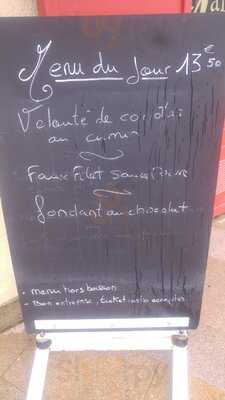 Menu du Jour 13€50
Velouté de
au cumin
Faux Filet sauce
fondant au chocolat
- menu hors boisson
- Bon entreprise, ticket resto acceptés